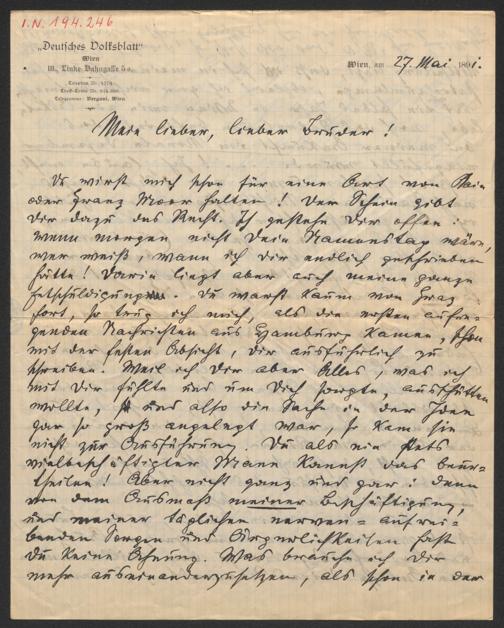 I.N. 194.246
„Deutsches Volksblatt"
Wien
III., Linke Bahngasse 5
Telegramme: Vergani, Wien.
Wien, am 27. Mai 189
Mein lieber, lieber Bruder!
Du wirst mich schon für eine Art von Kain
oder Franz Moor halten! Der Schein gibt
Dir dazu das Recht. Ich gestehe Dir offen:
wenn morgen nicht Dein Namenstag wäre,
wer weiß, wann ich Dir endlich geschrieben
hätte! Darin liegt aber auch meine ganze
Entschuldigung. Du warst kaum von Graz
fort, so trug ich mich, als die ersten aufre-
genden Nachrichten aus Hamburg kamen, schon
mit der festen Absicht, Dir ausführlich zu
schreiben. Weil ich Dir aber Alles, was ich
mit Dir fühlte und um Dich sorgte, ausschütten
wollte, und also die Sache in der Idee
gar so groß angelegt war, so kam sie
nicht zur Ausführung. Du als ein stets
vielbeschäftigter Mann kannst das beur-
theilen! Aber nicht ganz und gar: denn
von dem Ausmaß meiner Beschäftigung,
und meiner täglichen nerven-aufrei-
benden Sorgen und Ärgerlichkeiten hast
Du keine Ahnung. Was brauche ich Dir
mehr auseinanderzusetzen, als schon in der